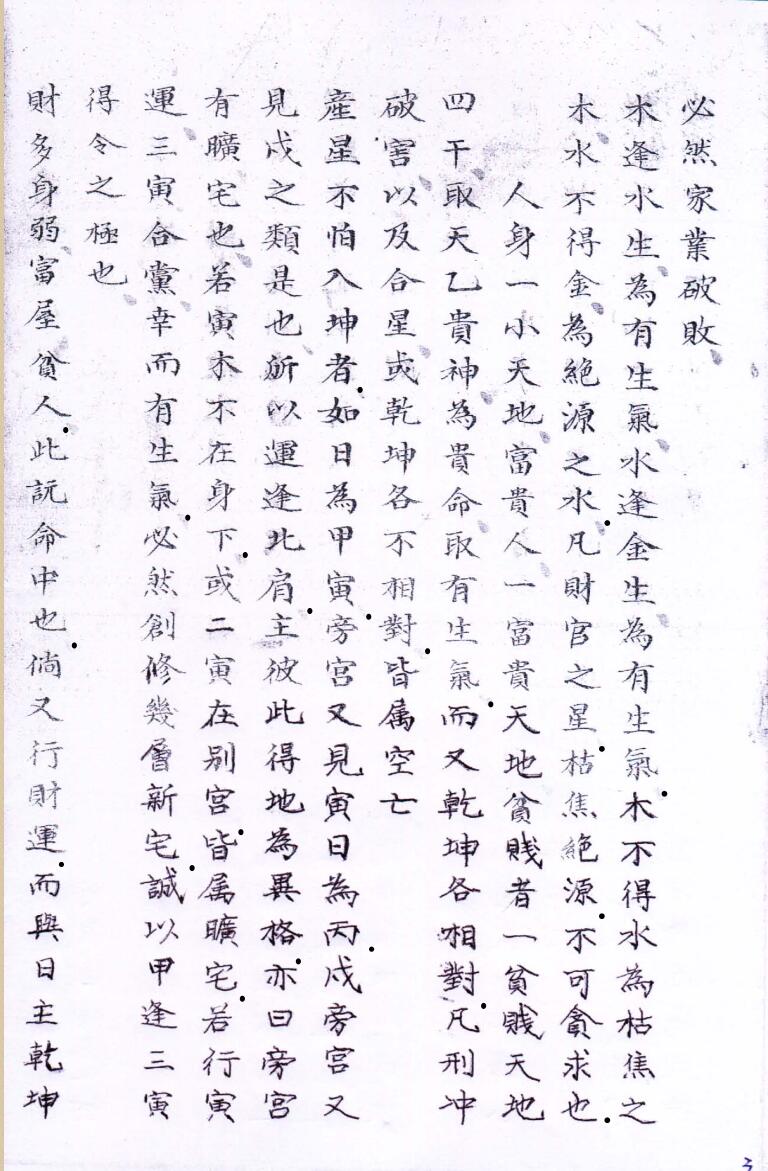 必然家業破敗
木逢水生為有生氣水逢金生為有生氣木不得水為枯焦之
木水不得金為絕源之水凡財官之星枯焦絕源不可貪求也
人身一小天地富貴人一富貴天地貧賤者一貧賤天地
四干取天乙貴神為貴命取有生氣而又乾坤各相對凡刑冲
破害以及合星或乾坤各不相對皆属空亡
產星不怕入坤者如日為甲寅旁宮又見寅日為丙戍旁宮又
見戍之類是也所以運逢北肩主彼此得地為異格亦曰旁宮
有曠宅也若寅木不在身下或二寅在别宮皆属曠宅若行寅
運三寅合黨幸而有生氣必然創修幾層新宅誠以甲逢三寅
得令之極也
財多身弱富屋貧人此説命中也倘又行財運而與日主乾坤
3